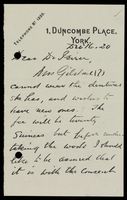 TELEPHONE Nº 1290.
1, DUNCOMBE PLACE,
YORK.
Dec 16. 20
Dear Dr
Mrs Gilstad (?)
cannot wear the dentures
she has, and wishes to
have new ones. The
fee will be twenty
Guineas but before
taking the work I should
like to be assured that
it is with the consent